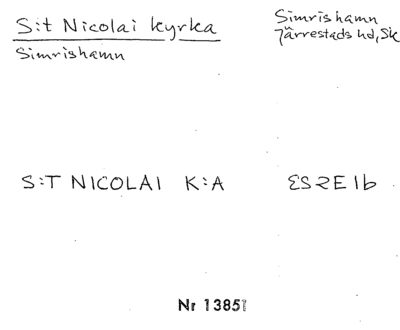 S:t Nicolai kyrka
Simrishamn
Simrishamn
Järrestads hd, Sk
S:T NICOLAI K:A ESRE1b
Nr 1385